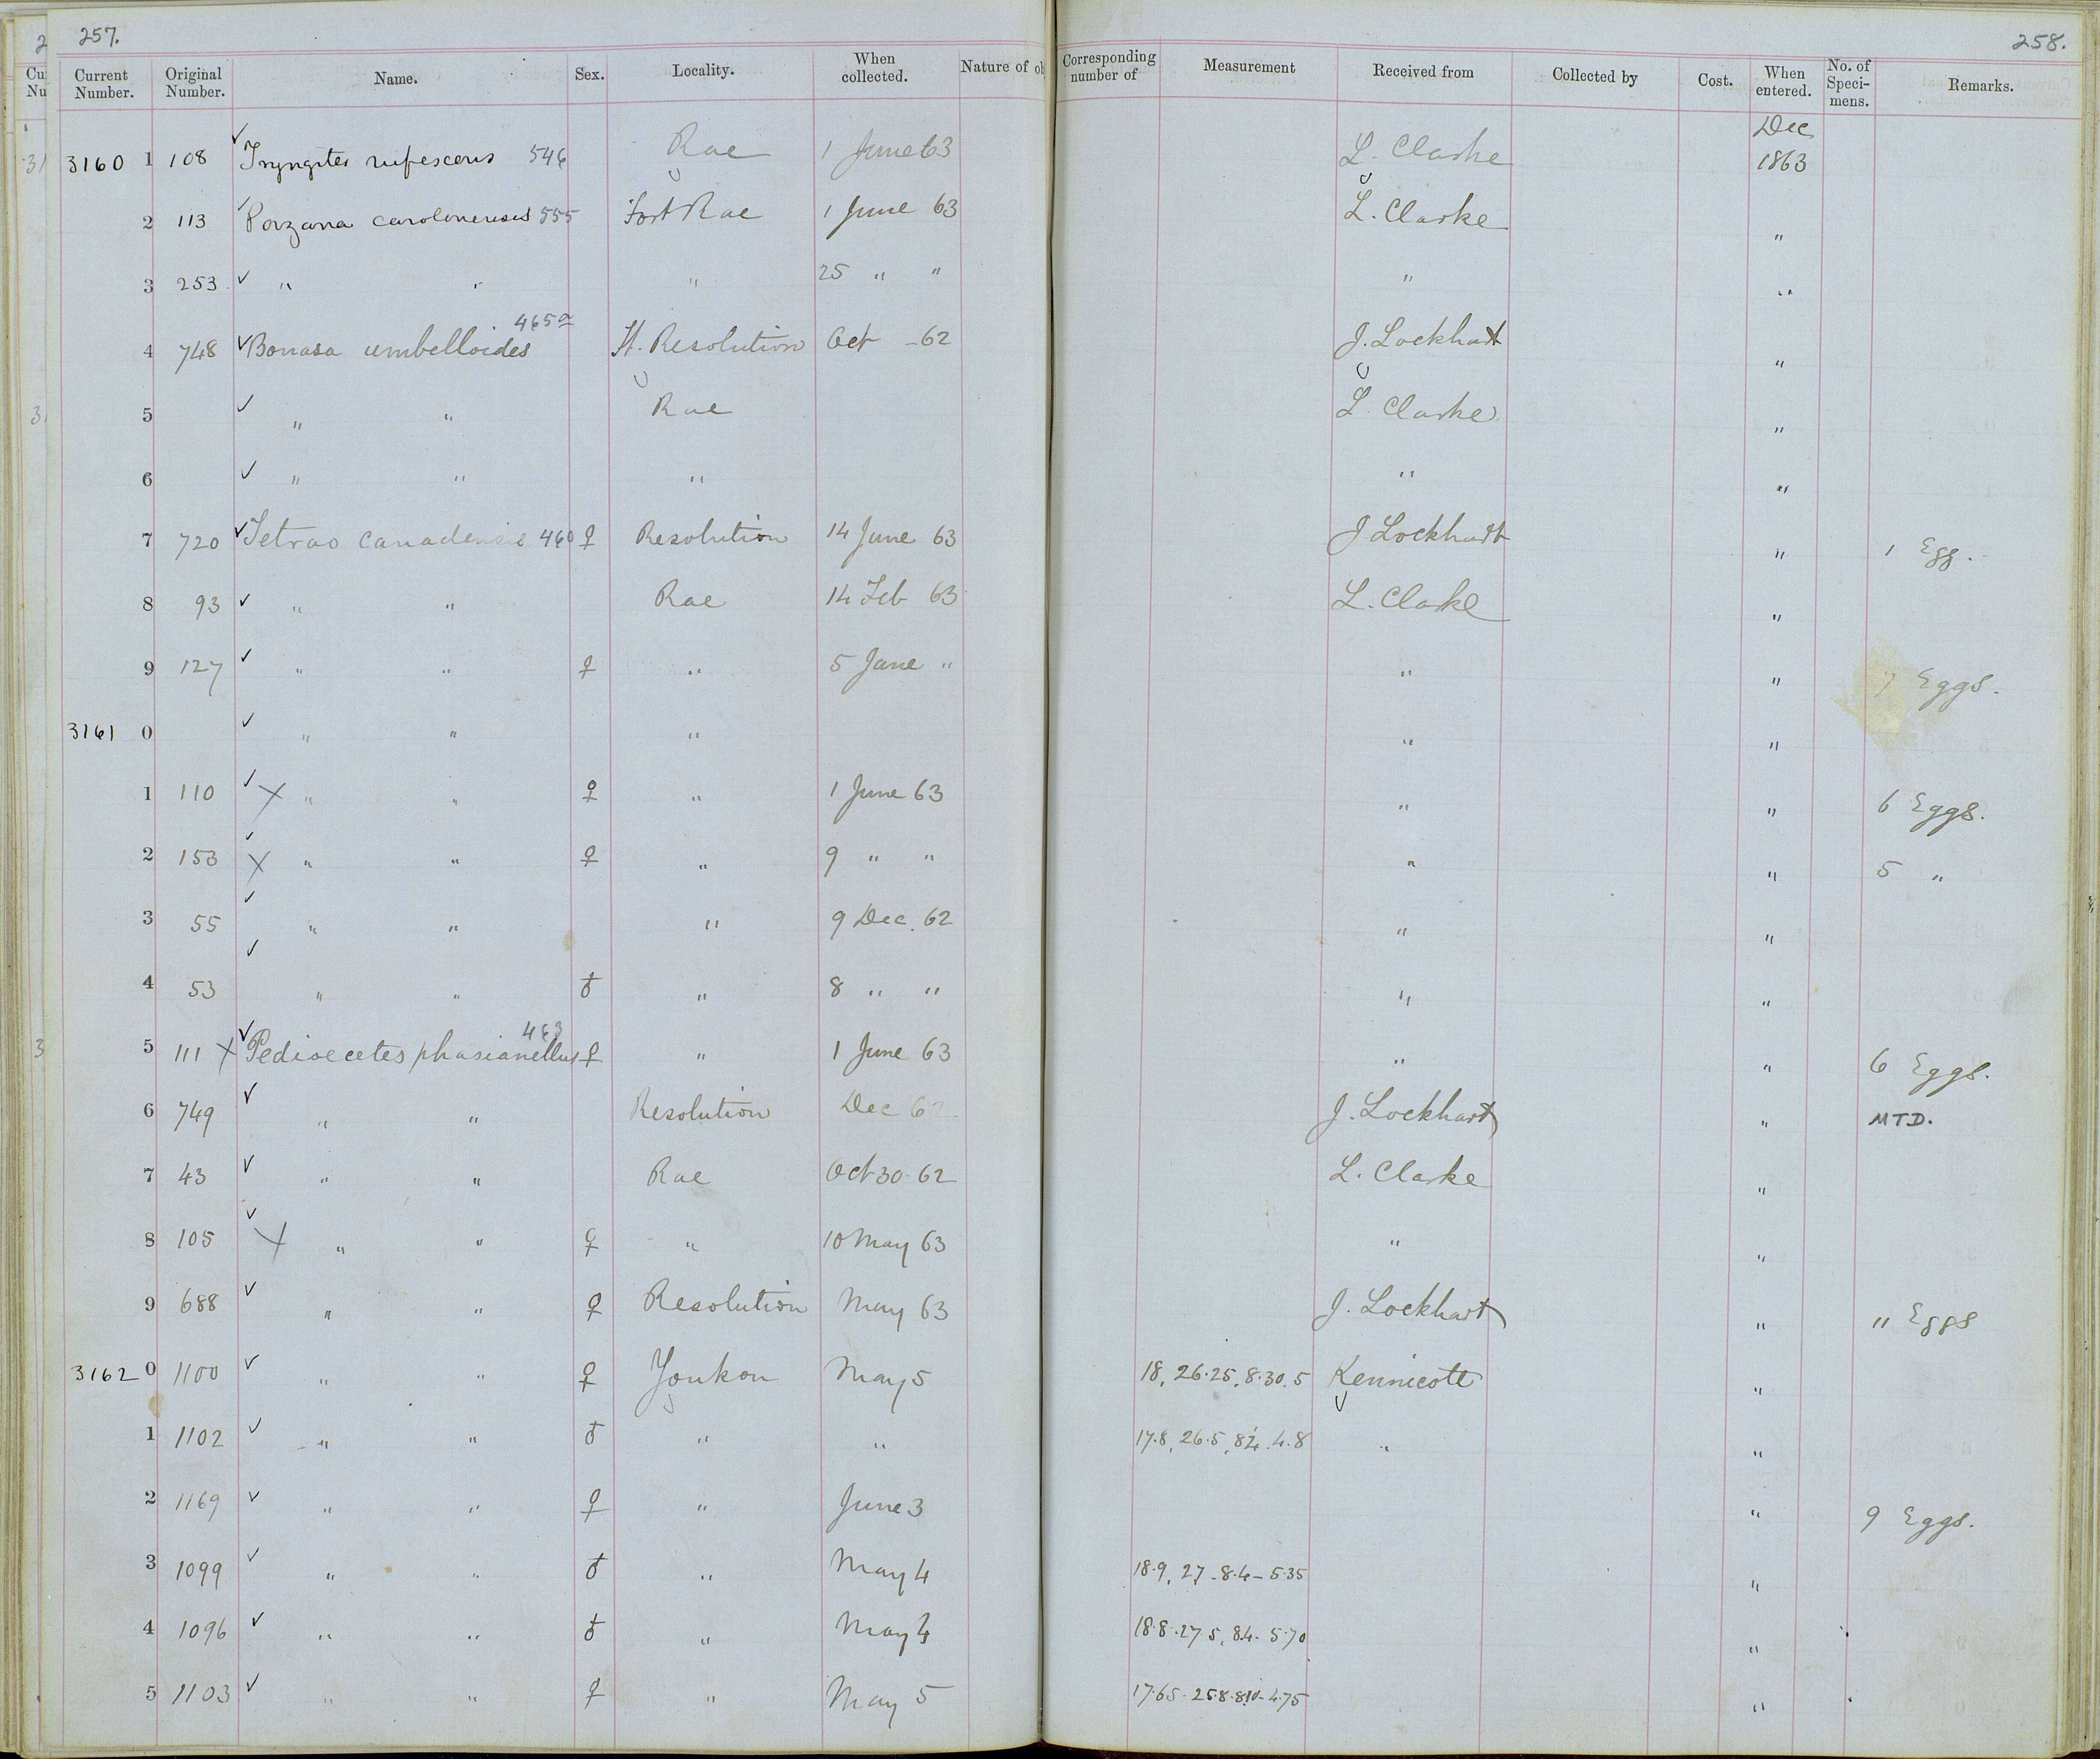 257.
258.
Current Number. Original Number. Name. Sex. Locality. When collected. Nature of Corresponding number of Measurement Received from Collected by Cost. When entered. No. of Speci-mens. Remarks.
3160 1 108 ✓ Tryngites rufescens 546 Rae 1 June 63 L. Clarke Dec 1863
2 113 ✓ Porzana carolinensis 555 Fort Rae 1 June 63 L. Clarke "
3 253 ✓ " " " 25 " " " "
4 748 ✓ Bonasa umbelloides 465a Ft. Resolution Oct - 62 J. Lockhart "
5 ✓ " " Rae L. Clarke "
6 ✓ " " " " "
7 720 ✓ Tetrao canadensis 460 ♀ Resolution 14 June 63 J. Lockhart " 1 Egg.
8 93 ✓ " " Rae 14 Feb 63 L. Clarke "
9 127 ✓ " " ♀ " 5 June " " " 7 Eggs.
3161 0 ✓ " " " " "
1 110 ✓ X " " ♀ " 1 June 63 " " 6 Eggs.
2 153 ✓ X " " ♀ " 9 " " " " 5 "
3 55 ✓ " " " 9 Dec. 62 " "
4 53 ✓ " " ♂ " 8 " " " "
5 111 X ✓ Pedioecetes phasianellus 463 ♀ " 1 June 63 " " 6 Eggs.
6 749 ✓ " " Resolution Dec 62 J. Lockhart " MTD.
7 43 ✓ " " Rae Oct 30 62 L. Clarke "
8 105 ✓ X " " ♀ " 10 May 63 " "
9 688 ✓ " " ♀ Resolution May 63 J. Lockhart " 11 Eggs
3162 0 1100 ✓ " " ♀ Youkon May 5 18, 26.25, 8.30, 5 Kennicott "
1 1102 ✓ " " ♂ " " 17.8, 26.5, 4.8 " "
2 1169 ✓ " " ♀ " June 3 " 9 Eggs.
3 1099 ✓ " " ♂ " May 4 18.9, 27 - 8.4 - 5.35 "
4 1096 ✓ " " ♂ " May 18.8 - 27.5, 8.4 - 5.70 "
5 1103 ✓ " " ♀ " May 5 17.65 - 25.8 - 8.10 - 4.75 "